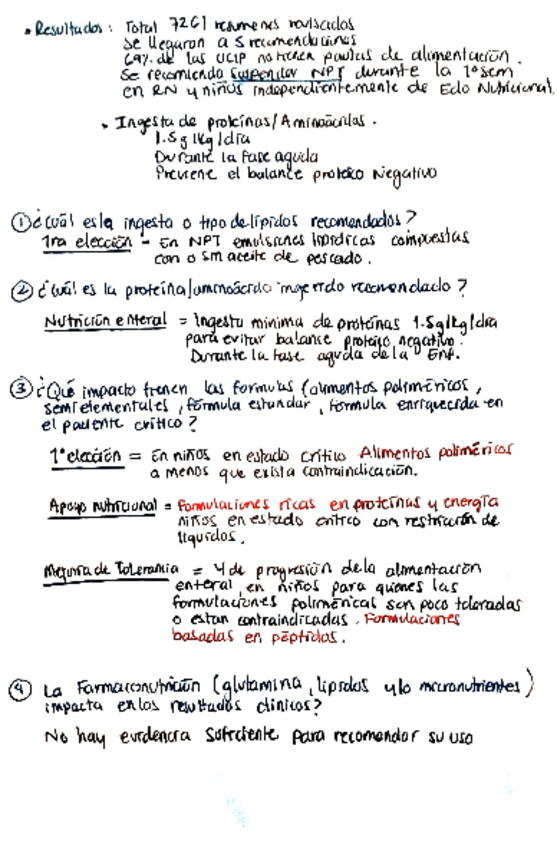 • Resultados: Total 7261 resumenes revisados
Se llegaron a 5 recomendaciones
69% de las UCIP no tienen pautas de alimentación.
Se recomienda suspender NPT durante la 1° sem
en RN y niños independientemente de Edo Nutricional.
• Ingesta de proteínas/Aminoácidos.
1.5 g/kg/día
Durante la fase aguda
Previene el balance proteico Negativo
① ¿Cuál es la ingesta o tipo de lípidos recomendados?
1ra elección - En NPT emulsiones lipídicas compuestas
con o sin aceite de pescado.
② ¿Cuál es la proteína/aminoácido ingerido recomendado?
Nutrición enteral = Ingesta minima de proteínas 1.5g/kg/día
para evitar balance proteico negativo.
Durante la fase aguda de la Enf.
③ ¿Qué impacto tienen las formulas (alimentos poliméricos,
semielementales, fórmula estandar, formula enriquecida en
el paciente crítico?
1° elección = En niños en estado crítico Alimentos poliméricos
a menos que exista contraindicación.
Apoyo nutricional = Formulaciones ricas en proteínas y energía
niños en estado crítico con restricción de
liquidos.
Mejoria de Tolerancia = y de progresión de la alimentación
enteral, en niños para quienes las
formulaciones poliméricas son poco toleradas
o estan contraindicadas. Formulaciones
basadas en péptidos.
④ La Farmaconutrición (glutamina, lípidos y/o micronutrientes)
impacta en los resultados clínicos?
No hay evidencia suficiente para recomendar su uso